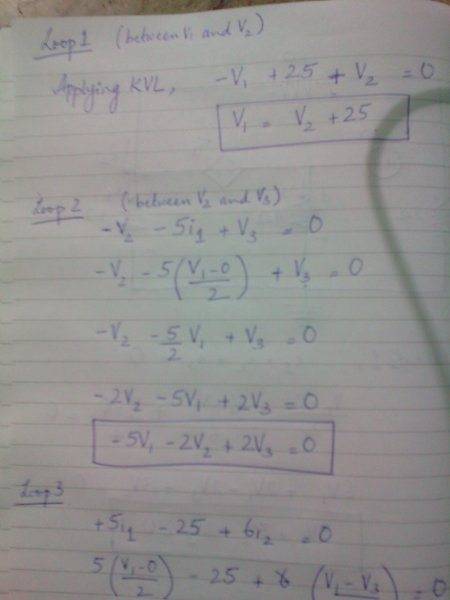 Loop 1 (between V₁ and V₂)
Applying KVL, -V₁ + 25 + V₂ = 0
V₁ = V₂ + 25
Loop 2 (between V₂ and V₃)
-V₂ - 5i₁ + V₃ = 0
-V₂ - 5((V₁-0)/2) + V₃ = 0
-V₂ - 5/2 V₁ + V₃ = 0
-2V₂ - 5V₁ + 2V₃ = 0
-5V₁ - 2V₂ + 2V₃ = 0
Loop 3
+5i₁ - 25 + 6i₂ = 0
5((V₁-0)/2) - 25 + 6 (V₁-V₃ = 0